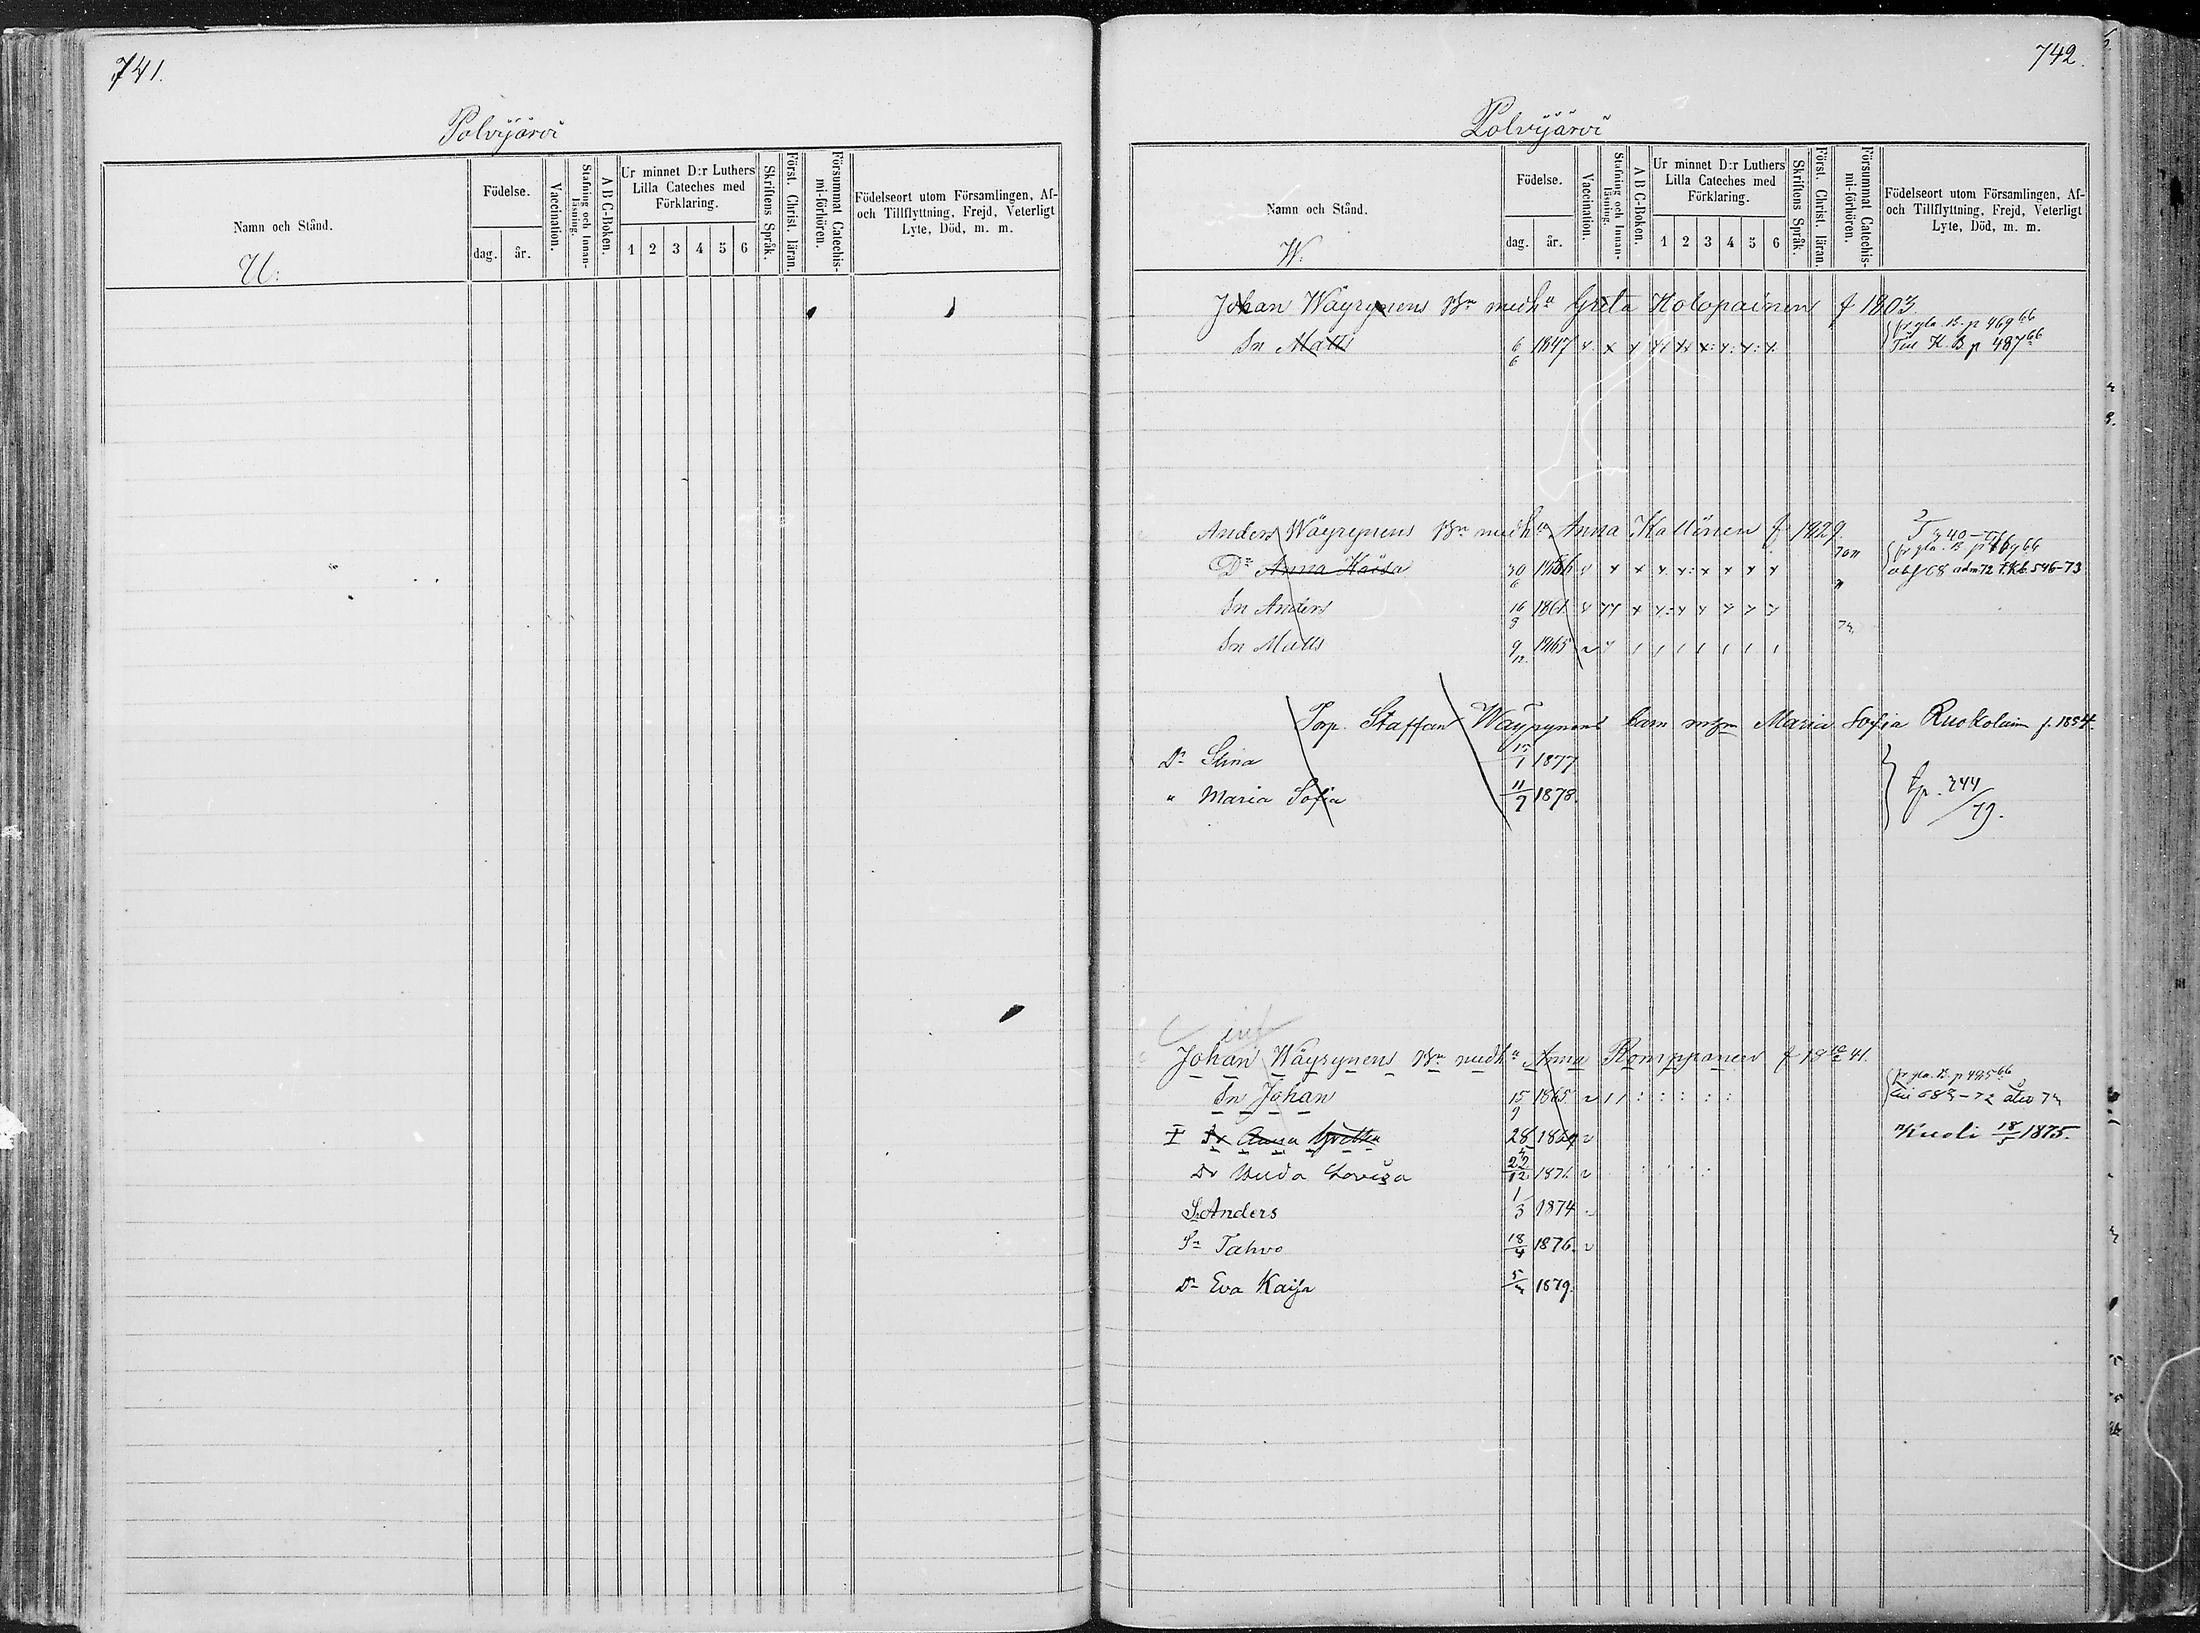 741.
Polvijärvi
Namn och Stånd.
U:
Födelse.
dag. år.
Vaccination.
Stafning och Innan-läsning.
A B C-Boken.
Ur minnet D:r Luthers Lilla Cateches med Förklaring.
1 2 3 4 5 6
Skriftens Språk.
Först. Christ. läran.
Försummat Catechis-mi-förhören.
Födelseort utom Församlingen, Af- och Tillflyttning, Frejd, Veterligt Lyte, Död, m. m.
742.
Polvijärvi
Namn och Stånd.
W:
Födelse.
dag. år.
Vaccination.
Stafning och Innan-läsning.
A B C-Boken.
Ur minnet D:r Luthers Lilla Cateches med Förklaring.
1 2 3 4 5 6
Skriftens Språk.
Först. Christ. läran.
Försummat Catechis-mi-förhören.
Födelseort utom Församlingen, Af- och Tillflyttning, Frejd, Veterligt Lyte, Död, m. m.
Johan Wäyrynens Bn med hu Greta Holopainen f 1803
fr gla B. p 469 66
Sn Matts 6/6 1847 Till K. B. p 487 66
Anders Wäyrynens Bn med hu Anna Hallinen f 1829.
Dr Anna Kaisa 30/6 1856 abs 68 adm 72 f. Kb. 546-73
Sn Anders 16/8 1861
Sn Matts 9/12 1865
Torp. Staffan Wäyrynens barn m Maria Sofia Ruokolain f. 1854.
Dr Stina 15/1 1877
" Maria Sofia 11/9 1878.
fp. 344/79.
Johan Wäyrynens Bn med hu Anna Romppanen f 18 41.
fr gla. B. p 485 66
Sn Johan 15/9 1865
Dr Anna Gretta 28 1869 Kuoli 18/5 1875.
Dr Lovisa 22/12 1871
Sn Anders 1/3 1874
Sn Tahvo 18/4 1876
Dr Eva Kaisa 1879.